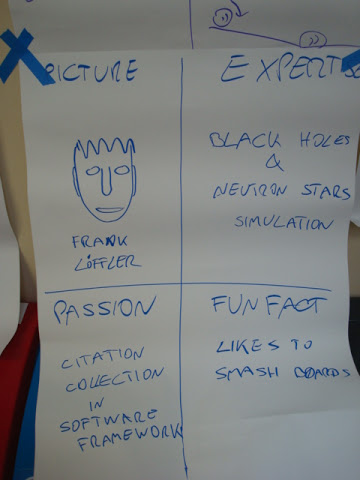 PICTURE
FRANK
LÖFFLER
EXPERTISE
BLACK HOLES
&
NEUTRON STARS
SIMULATION
PASSION
CITATION
COLLECTION
IN
SOFTWARE
FRAMEWORK
FUN FACT
LIKES TO
SMASH BOARDS